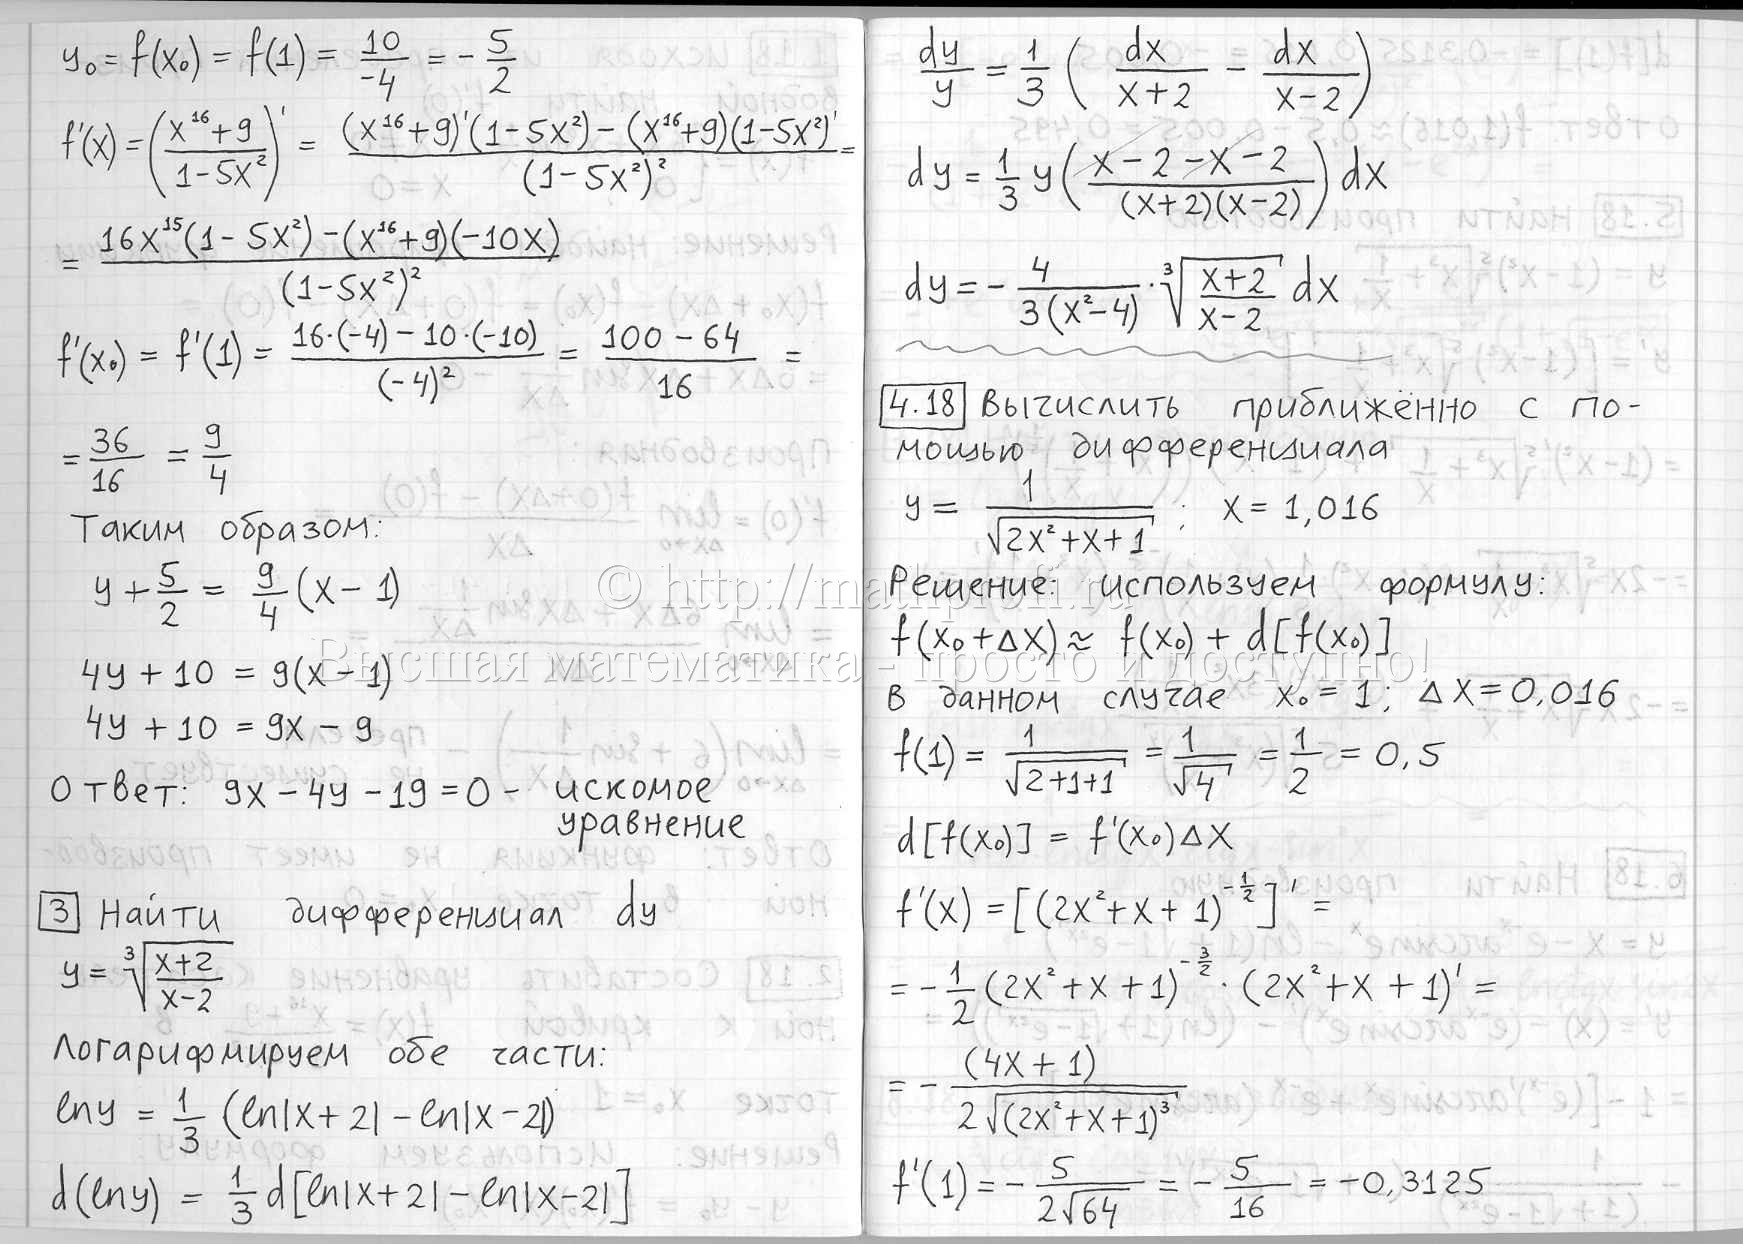 y₀ = f(x₀) = f(1) = 10/-4 = - 5/2
f'(x) = ((x¹⁶+9)/(1-5x²))' = ((x¹⁶+9)'(1-5x²) - (x¹⁶+9)(1-5x²)')/(1-5x²)² =
= (16x¹⁵(1-5x²) - (x¹⁶+9)(-10x))/(1-5x²)²
f'(x₀) = f'(1) = (16·(-4) - 10·(-10))/(-4)² = (100 - 64)/16 =
= 36/16 = 9/4
Таким образом:
y + 5/2 = 9/4 (x - 1)
4y + 10 = 9(x - 1)
4y + 10 = 9x - 9
Ответ: 9x - 4y - 19 = 0 - искомое
уравнение
3 Найти дифференциал dy
y = ∛((x+2)/(x-2))
Логарифмируем обе части:
ln y = 1/3 (ln|x+2| - ln|x-2|)
d(ln y) = 1/3 d[ln|x+2| - ln|x-2|]
dy/y = 1/3 (dx/(x+2) - dx/(x-2))
dy = 1/3 y ((x - 2 - x - 2)/((x+2)(x-2))) dx
dy = - 4/(3(x²-4)) · ∛((x+2)/(x-2)) dx
4.18 Вычислить приближённо с по-
мощью дифференциала
y = 1/√(2x²+x+1) ; x = 1,016
Решение: используем формулу:
© http://mathprofi.ru
f(x₀ + Δx) ≈ f(x₀) + d[f(x₀)]
Высшая математика - просто и доступно!
В данном случае x₀ = 1; Δx = 0,016
f(1) = 1/√(2+1+1) = 1/√4 = 1/2 = 0,5
d[f(x₀)] = f'(x₀)Δx
f'(x) = [(2x²+x+1)^(-1/2)]' =
= - 1/2 (2x²+x+1)^(-3/2) · (2x²+x+1)' =
= - (4x+1)/(2√((2x²+x+1)³))
f'(1) = - 5/(2√64) = - 5/16 = -0,3125